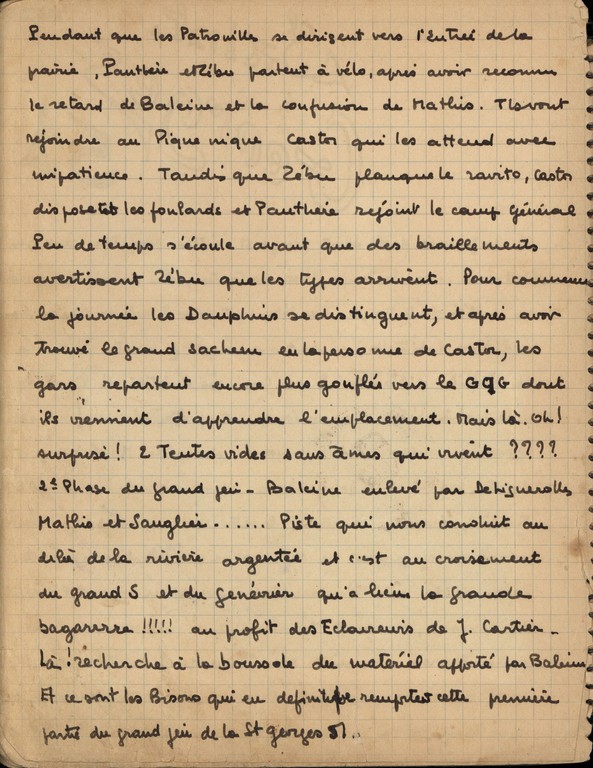 Pendant que les Patrouilles se dirigent vers l'Entreé de la
prairie, Panthère et Zébu partent à vélo, après avoir reconnu
le retard de Baleine et la confusion de Mathis. Ils vont
rejoindre au Pique nique Castor qui les attend avec
impatience. Tandis que Zébu planque le ravito, Castor
dispose les foulards et Panthère rejoint le camp Général
Peu de temps s'écoule avant que des braillements
avertissent Zébu que les types arrivent. Pour commencer
la journée les Dauphins se distinguent, et après avoir
trouvé le grand sachem en la personne de Castor, les
gars repartent encore plus gonflés vers le GQG dont
ils viennent d'apprendre l'emplacement. Mais là. Oh!
surprise! 2 Tentes vides sans âmes qui vivent ????
2e Phase du grand jeu - Baleine enlevé par
Mathis et Sanglier ...... Piste qui nous conduit au
delà de la rivière argenteé et c'est au croisement
du grand S et du Genévrier qu'a lieu la grande
bagarerre !!!!! au profit des Eclaireurs de J. Cartier -
Là! recherche à la boussole du matériel apporté par Baleine
Et ce sont les Bisons qui en remportent cette première
partie du grand jeu de la St Georges 51.